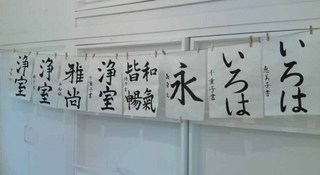 いろは
いろは
千重子書
永
和氣
皆暢
浄室
雅尚
浄室
浄室